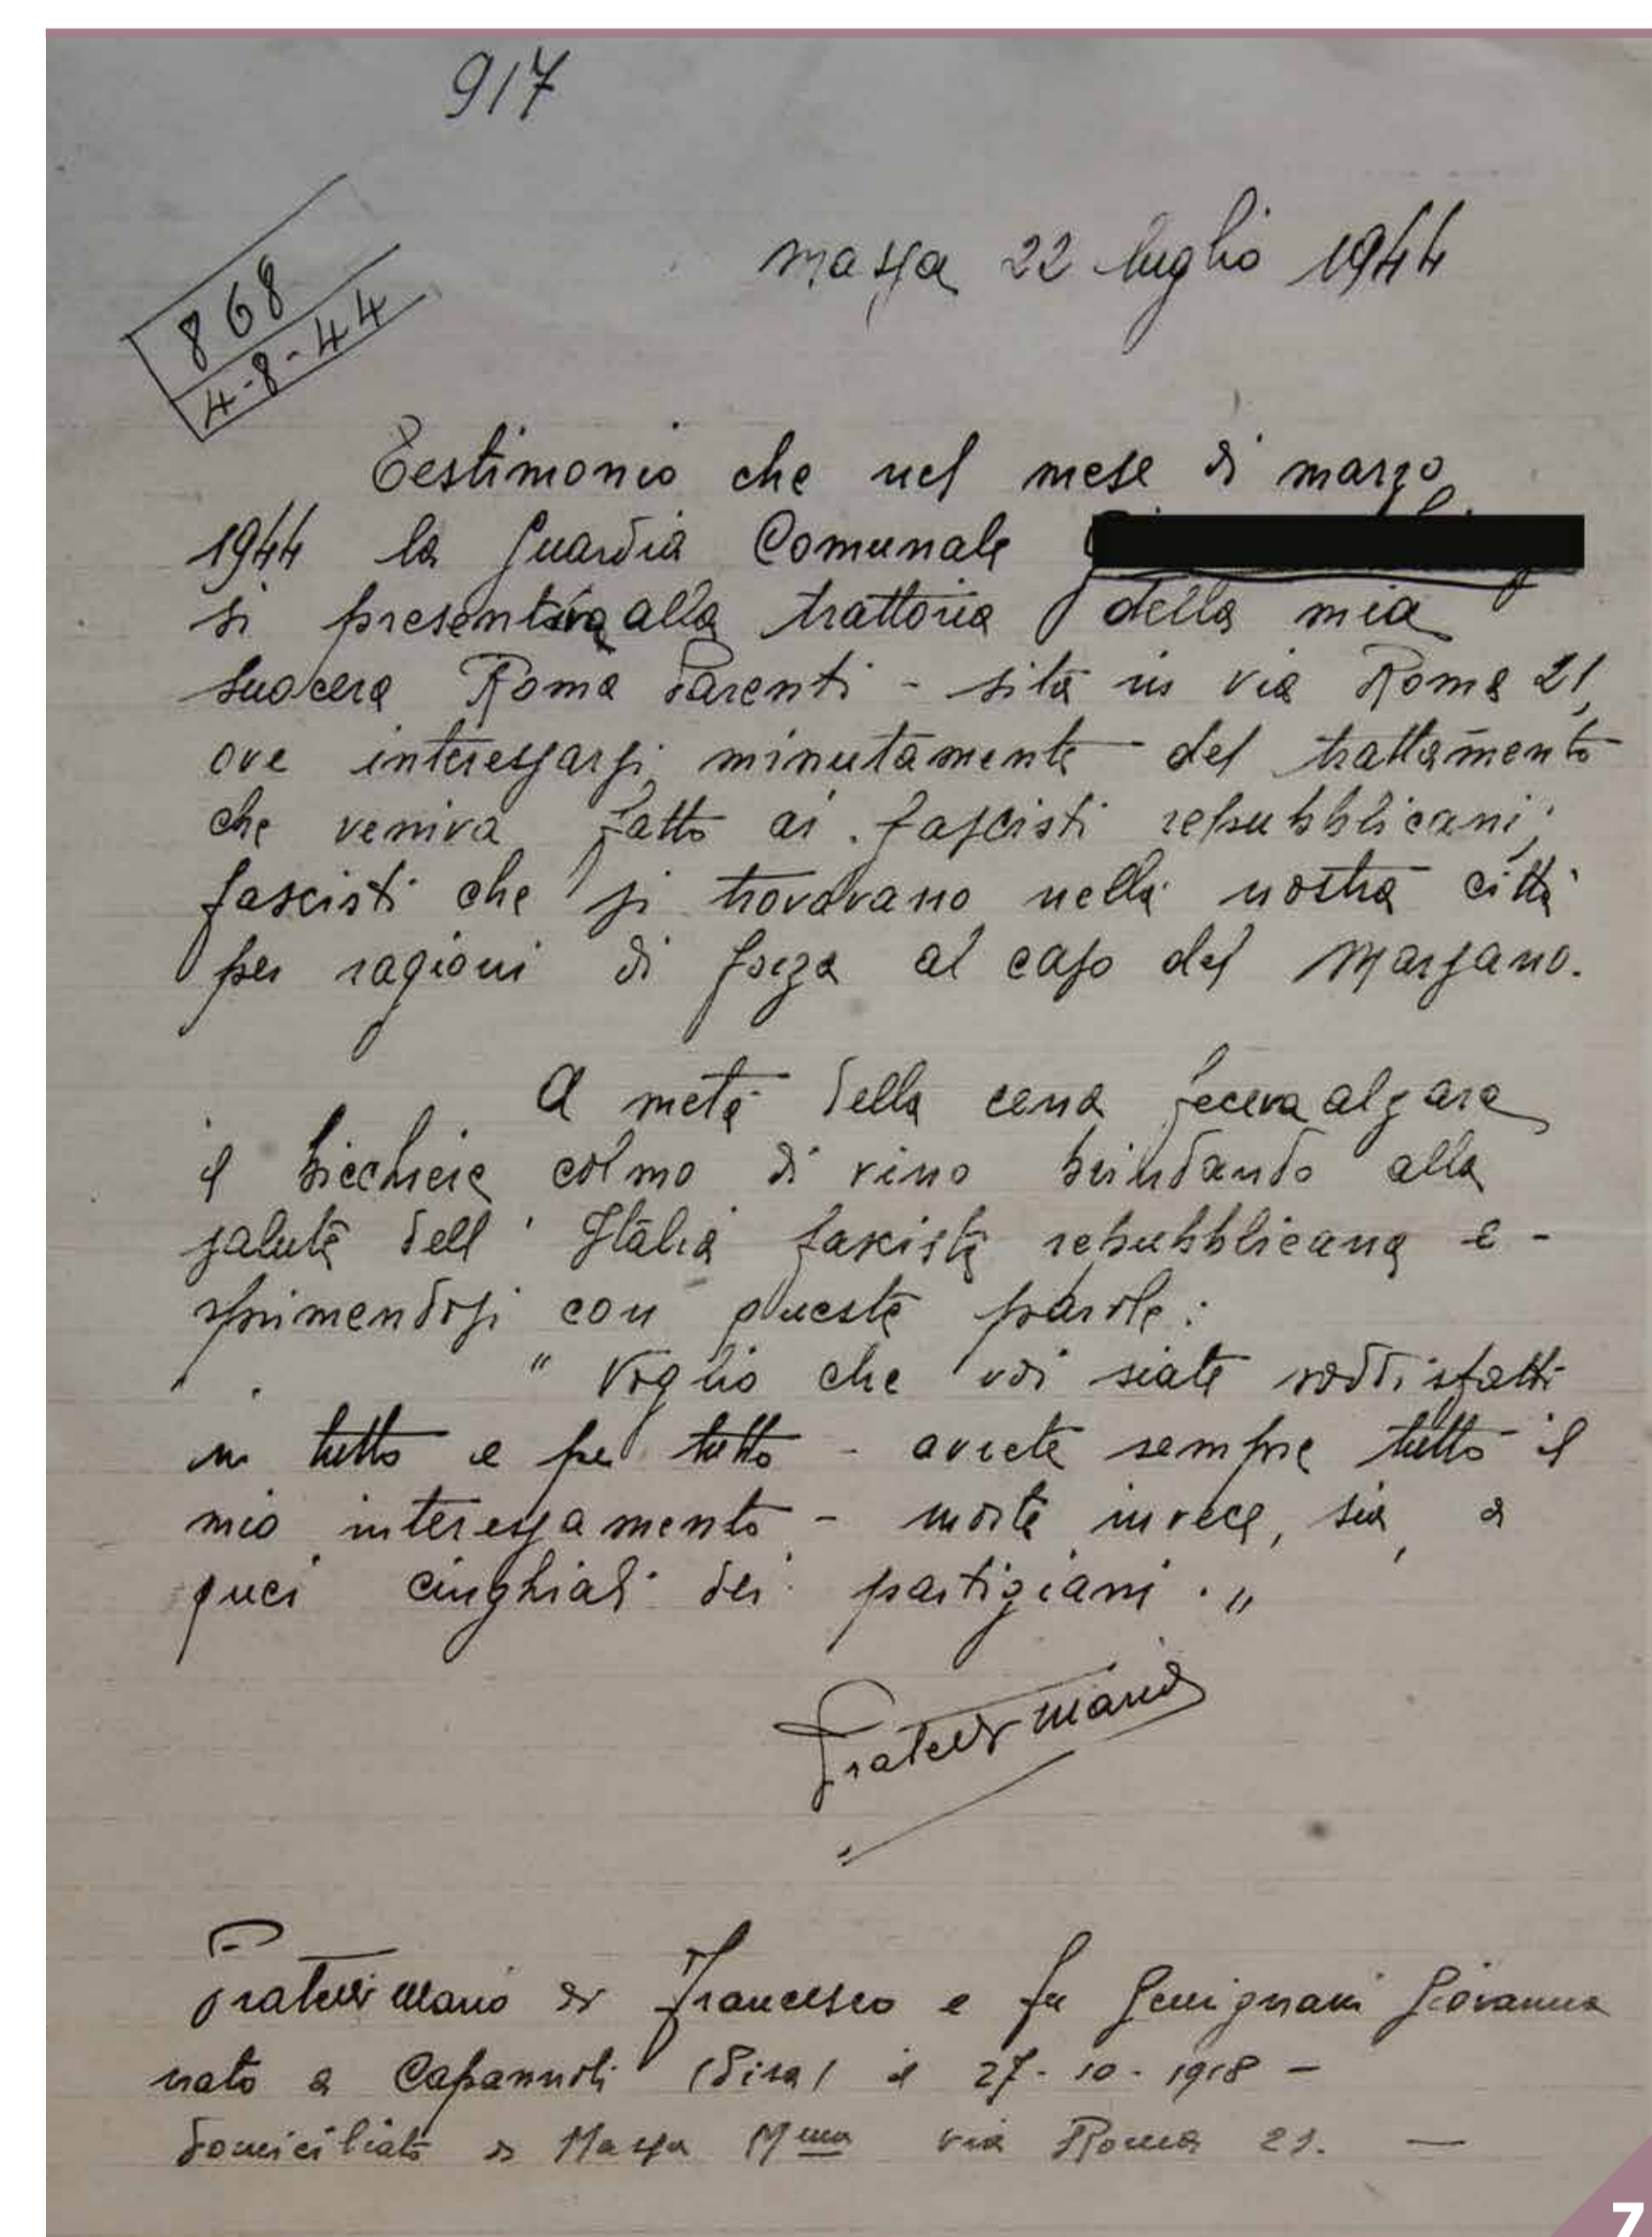 917
Massa 22 luglio 1944
868
4-8-44
Testimonio che nel mese di marzo
1944 la Guardia Comunale
si presentava alla trattoria della mia
suocera Roma Parenti - sita in via Roma 21,
ove interessarsi minutamente del trattamento
che veniva fatto ai fascisti repubblicani;
fascisti che si trovavano nella nostra città
per ragioni di forza al caso del Marsano.
A metà della cena faceva alzare
il bicchiere colmo di vino brindando alla
salute dell'Italia fascista repubblicana e-
sprimendosi con queste parole:
" Voglio che voi siate soddisfatti
in tutto e per tutto - avrete sempre tutto il
mio interessamento - morte invece, sia, a
quei cinghiali dei partigiani. "
Mario
Mario di Francesco e fu Gemignani Giovanna
nato a Capannoli (Pisa) il 27-10-1918 -
domiciliato a Massa Mma via Roma 21. -
7